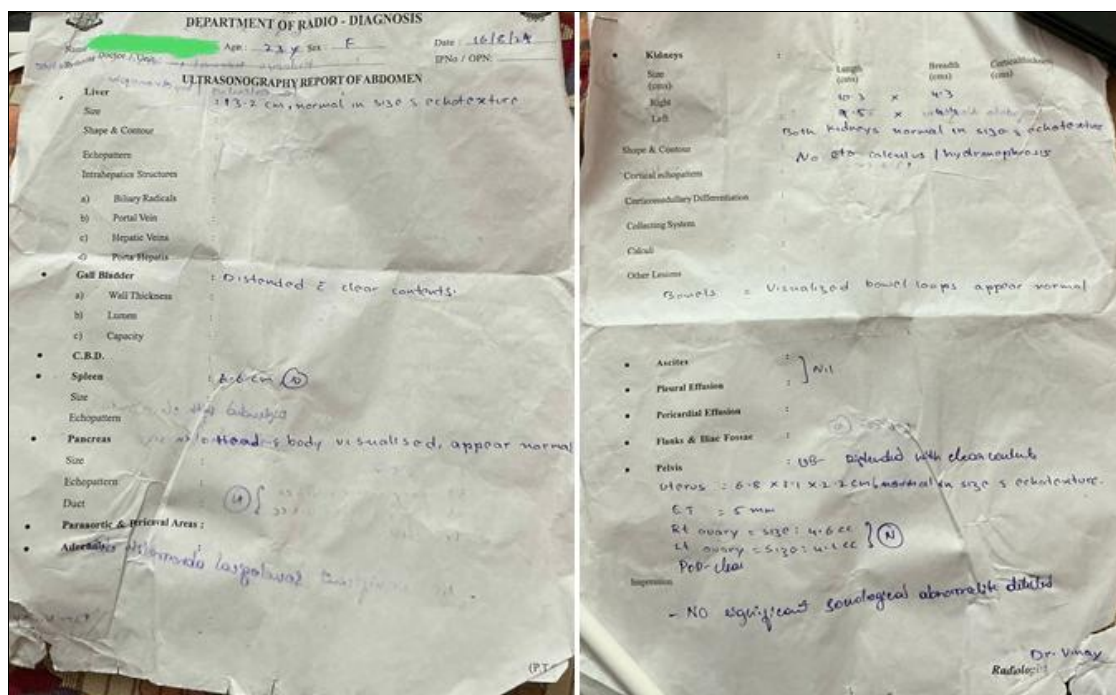 DEPARTMENT OF RADIO - DIAGNOSIS
Name Age : 23y Sex : F Date : 16/8/24
Doctor / Unit IPNo / OPN:
ULTRASONOGRAPHY REPORT OF ABDOMEN
• Liver
Size : 13.2 cm, normal in size & echotexture
Shape & Contour :
Echopattern
Intrahepatics Structures
a) Biliary Radicals :
b) Portal Vein :
c) Hepatic Veins :
d) Porta Hepatis
• Gall Bladder : Distended c clear contents.
a) Wall Thickness :
b) Lumen :
c) Capacity :
• C.B.D. :
• Spleen : cm (N)
Size
Echopattern
• Pancreas Head & body visualised, appear normal
Size :
Echopattern
Duct :
• Paraaortic & Pericaval Areas :
• Adrenals :
(P.T
• Kidneys :
Size Length Breadth Corticalthickness
(cms) (cms) (cms) (cms)
Right 10.3 x 4.3
Left 9.55 x
Both kidneys normal in size & echotexture
Shape & Contour No e/o calculus / hydronephrosis
Cortical echopattern
Corticomedullary Differentiation
Collecting System
Calculi
Other Lesions
Bowels = Visualized bowel loops appear normal
• Ascites : ] Nil
• Pleural Effusion :
• Pericardial Effusion :
• Flanks & Iliac Fossae :
• Pelvis : UB- Distended with clear contents
Uterus : 6.8 x 3.1 x 2.2 cm, normal in size & echotexture.
ET : 5 mm
Rt ovary = size : 4.6 cc } (N)
Lt ovary = size : 4.1 cc
POD- clear
Impression
- NO significant sonological abnormalite ditected
Dr. Vinay
Radiologist